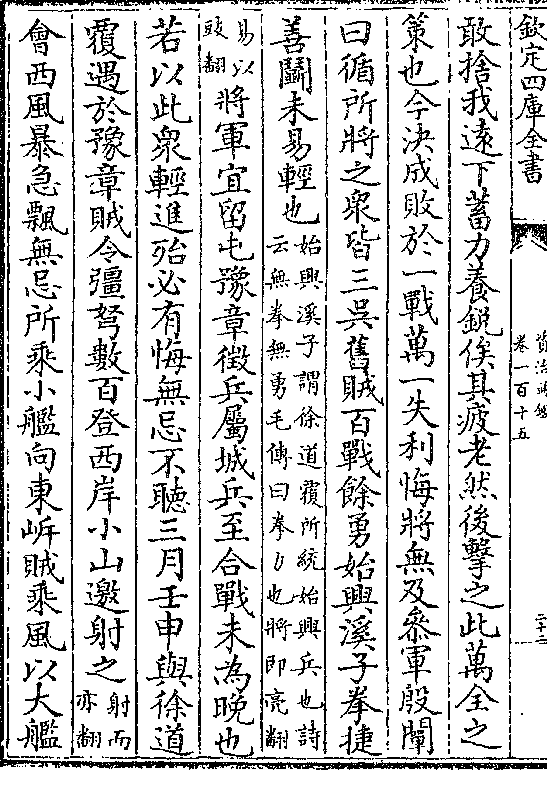 欽定四庫全書
資治通鑑
卷一百十五
敢捨我遠下蓄力養銳俟其疲老然後擊之此萬全之
策也今決成敗於一戰萬一失利悔將無及叅軍殷闡
曰循所將之衆皆三吳舊賊百戰餘勇始興溪子拳捷
善鬭未易輕也始興溪子謂徐道覆所統始興兵也詩
云無拳無勇毛傳曰拳力也將即亮翻
易以豉翻將軍宜留屯豫章徵兵屬城兵至合戰未為晚也
若以此衆輕進殆必有悔無忌不聽三月壬申與徐道
覆遇於豫章賊令彊弩數百登西岸小山邀射之射而亦翻
會西風暴急飄無忌所乘小艦向東岍賊乘風以大艦